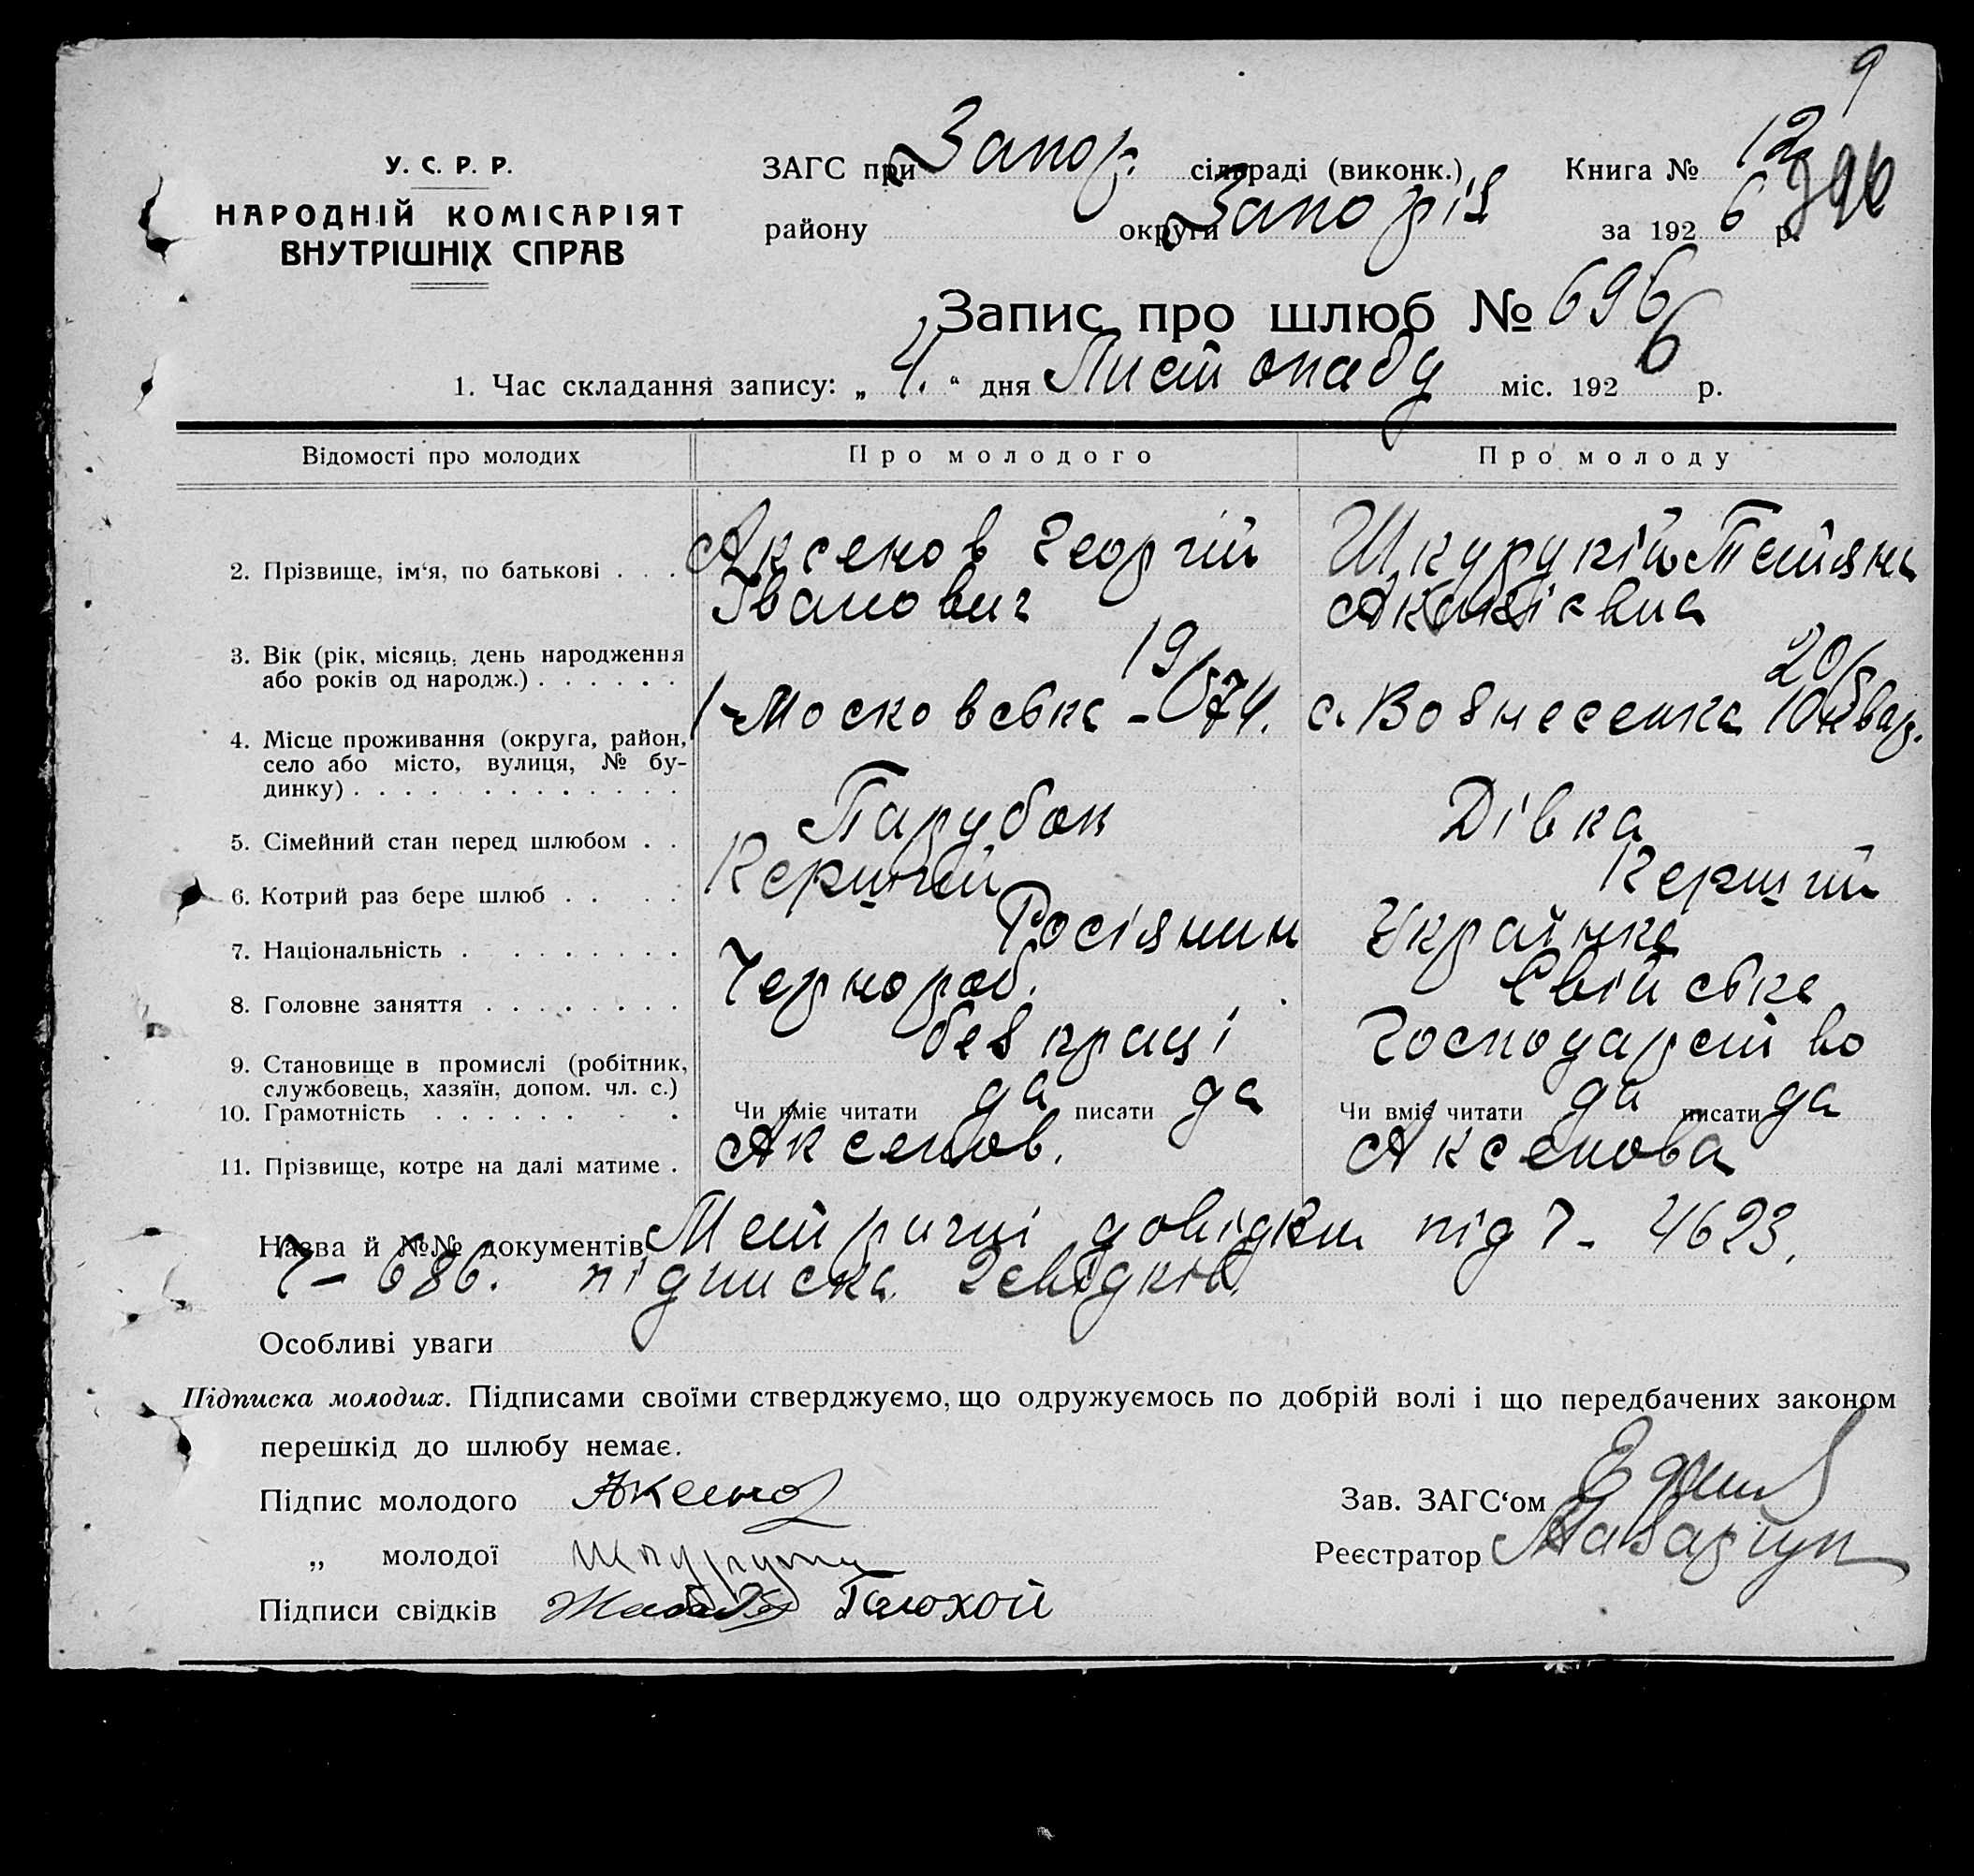 9
У. С. Р. Р.
НАРОДНІЙ КОМІСАРІЯТ
ВНУТРІШНІХ СПРАВ
ЗАГС при Запор. сільраді (виконк.) Книга № 12
району округи Запоріз за 1926 р.
Запис про шлюб № 696
1. Час складання запису: „4.“ дня Листопаду міс. 1926 р.
Відомості про молодих Про молодого Про молоду
2. Прізвище, ім‘я, по батькові . . . Аксенов Георгій Шкурукій Тетяна
Іванович
3. Вік (рік, місяць, день народження 19 20
або років од народж.) . . . . . .
Московська - 74. с. Вознесенка
4. Місце проживання (округа, район,
село або місто, вулиця, № бу-
динку) . . . . . . . . . . . . . .
5. Сімейний стан перед шлюбом . . Парубок Дівка
6. Котрий раз бере шлюб . . . . Перший Перший
7. Національність . . . . . . . . Росіянин Українка
8. Головне заняття . . . . . . . . Чернороб. Свійське
без праці Господарство
9. Становище в промислі (робітник,
службовець, хазяїн, допом. чл. с.)
10. Грамотність . . . . . . . . Чи вміє читати да писати да Чи вміє читати да писати да
11. Прізвище, котре на далі матиме . Аксенов. Аксенова
Назва й №№ документів Метричні довідки під 7 - 4623.
7 - 686. підписка 2 свідків.
Особливі уваги
Підписка молодих. Підписами своїми стверджуємо, що одружуємось по добрій волі і що передбачених законом
перешкід до шлюбу немає.
Підпис молодого Аксенов Зав. ЗАГС‘ом
„ молодої Реєстратор
Підписи свідків